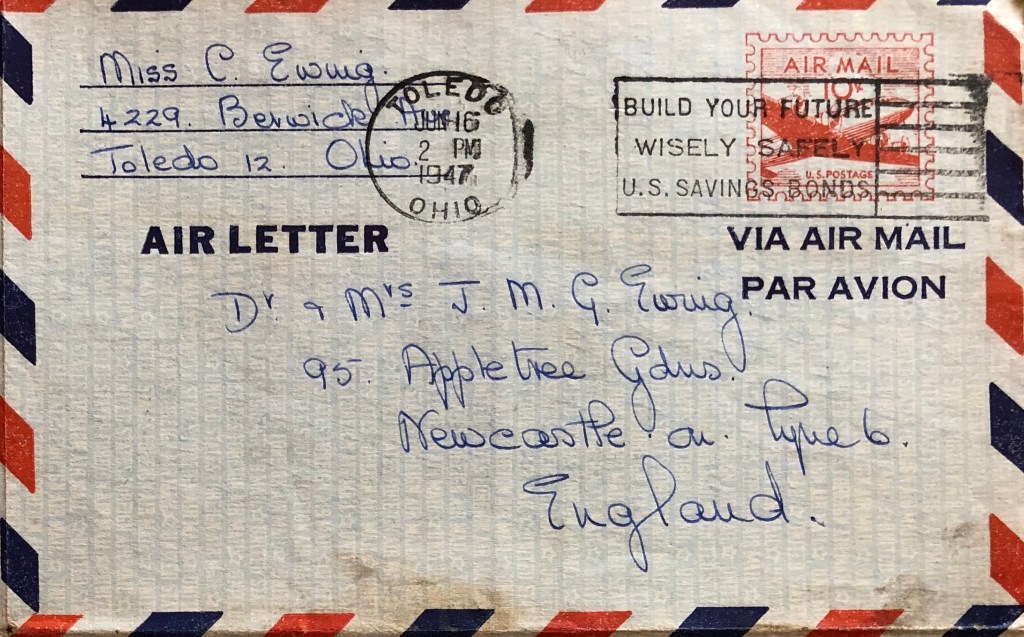 Miss C. Ewing.
4229. Berwick
Toledo 12. Ohio.
TOLEDO
JUN 16
2 PM
1947
OHIO
AIR MAIL
10¢
U.S. POSTAGE
BUILD YOUR FUTURE
WISELY SAFELY
U.S. SAVINGS BONDS
AIR LETTER
VIA AIR MAIL
PAR AVION
Dr. & Mrs J. M. G. Ewing.
95. Appletree Gdns.
Newcastle. on. Tyne 6.
England.